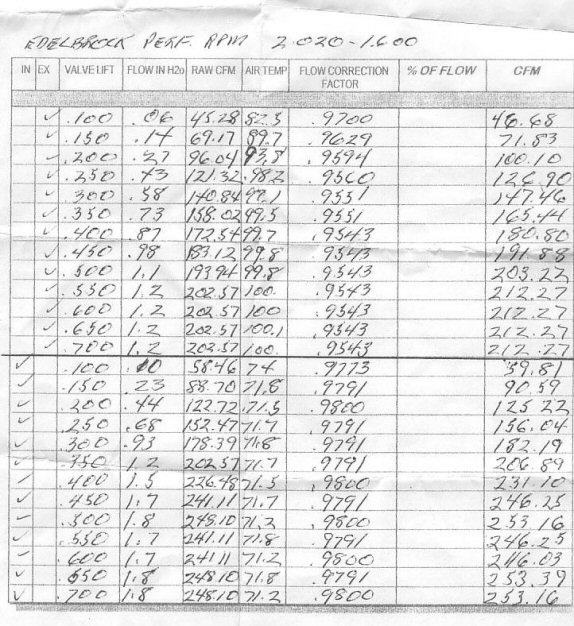 EDELBROCK PERF. RPM 2.020-1.600
IN EX VALVE LIFT FLOW IN H2o RAW CFM AIR TEMP FLOW CORRECTION FACTOR % OF FLOW CFM
✓ .100 .06 45.28 82.5 .9700 46.68
✓ .150 .14 69.17 89.7 .9629 71.83
✓ .200 .27 96.04 93.8 .9594 100.10
✓ .250 .43 121.32 98.2 .9560 126.90
✓ .300 .58 140.84 99.1 .9551 147.46
✓ .350 .73 158.02 99.5 .9551 165.44
✓ .400 .87 172.54 99.7 .9543 180.80
✓ .450 .98 183.12 99.8 .9543 191.88
✓ .500 1.1 193.94 99.8 .9543 203.22
✓ .550 1.2 202.57 100. .9543 212.27
✓ .600 1.2 202.57 100 .9543 212.27
✓ .650 1.2 202.57 100.1 .9543 212.27
✓ .700 1.2 202.57 100. .9543 212.27
✓ .100 .10 58.46 74 .9773 59.81
✓ .150 .23 88.70 71.8 .9791 90.59
✓ .200 .44 122.72 71.5 .9800 125.22
✓ .250 .68 152.47 71.7 .9791 156.04
✓ .300 .93 178.39 71.8 .9791 182.19
✓ .350 1.2 202.57 71.7 .9791 206.89
✓ .400 1.5 226.48 71.5 .9800 231.10
✓ .450 1.7 241.11 71.7 .9791 246.25
✓ .500 1.8 248.10 71.2 .9800 253.16
✓ .550 1.7 241.11 71.8 .9791 246.25
✓ .600 1.7 241.11 71.2 .9800 246.03
✓ .650 1.8 248.10 71.8 .9791 253.39
✓ .700 1.8 248.10 71.2 .9800 253.16